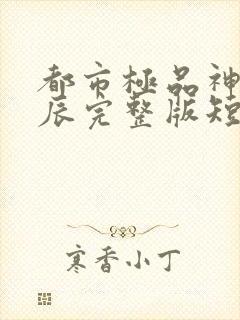 都市極品神
辰完整版短
寒香小丁